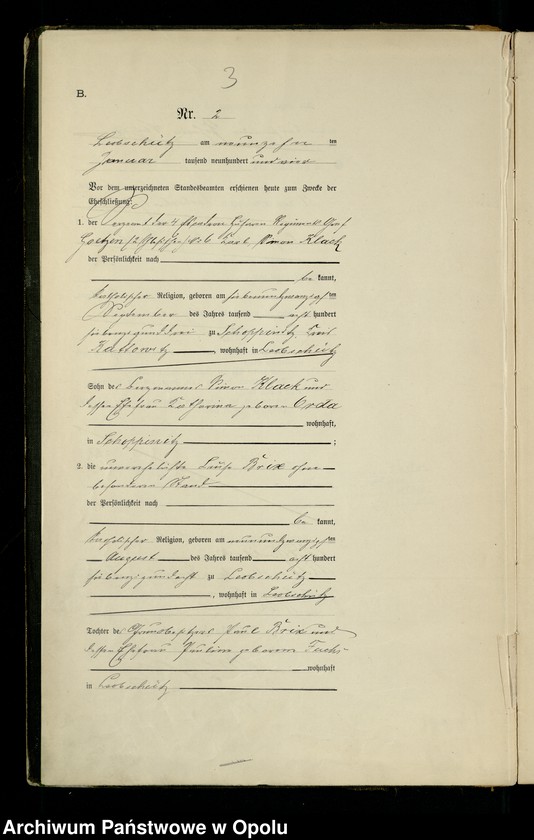 3
B.
Nr. 2
Leobschütz am neunzehn ten
Januar tausend neunhundert und vier
Vor dem unterzeichneten Standesbeamten erschienen heute zum Zwecke der
Eheschließung:
1. der Sergeant der 4 Eskadron Husaren Regiments Graf
Goetzen Simon Klack
der Persönlichkeit nach
be kannt,
katholischer Religion, geboren am siebenundzwanzigsten
September des Jahres tausend acht hundert
siebenzig und drei zu Schoppinitz, Kreis
Kattowitz, wohnhaft in Leobschütz
Sohn des Bergmannes Simon Klack und
dessen Ehefrau Katharina geborene Orda
wohnhaft,
in Schoppinitz ;
2. die unverehelichte Luise Brix ohne
besonderen Stand
der Persönlichkeit nach
be kannt,
katholischer Religion, geboren am neunundzwanzigsten
August des Jahres tausend acht hundert
siebenzig und acht zu Leobschütz
, wohnhaft in Leobschütz
Tochter des Hausbesitzers Paul Brix und
dessen Ehefrau Pauline geborene Fuchs
wohnhaft
in Leobschütz
Archiwum Państwowe w Opolu